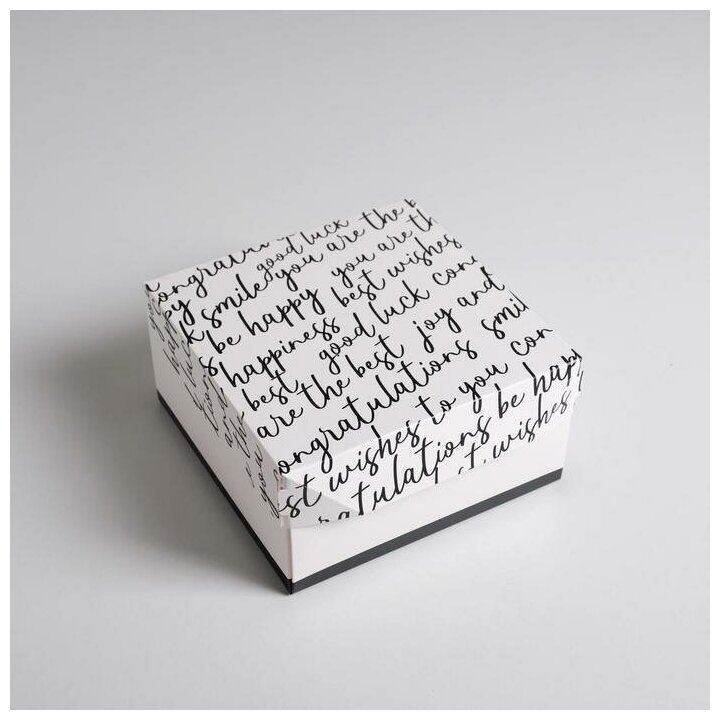 congratula
good luck
smile you are the b
be happy you are th
happiness best wishes
best good luck con
are the best joy and
congratulations smil
best wishes to you con
congratulations be happ
best wishes